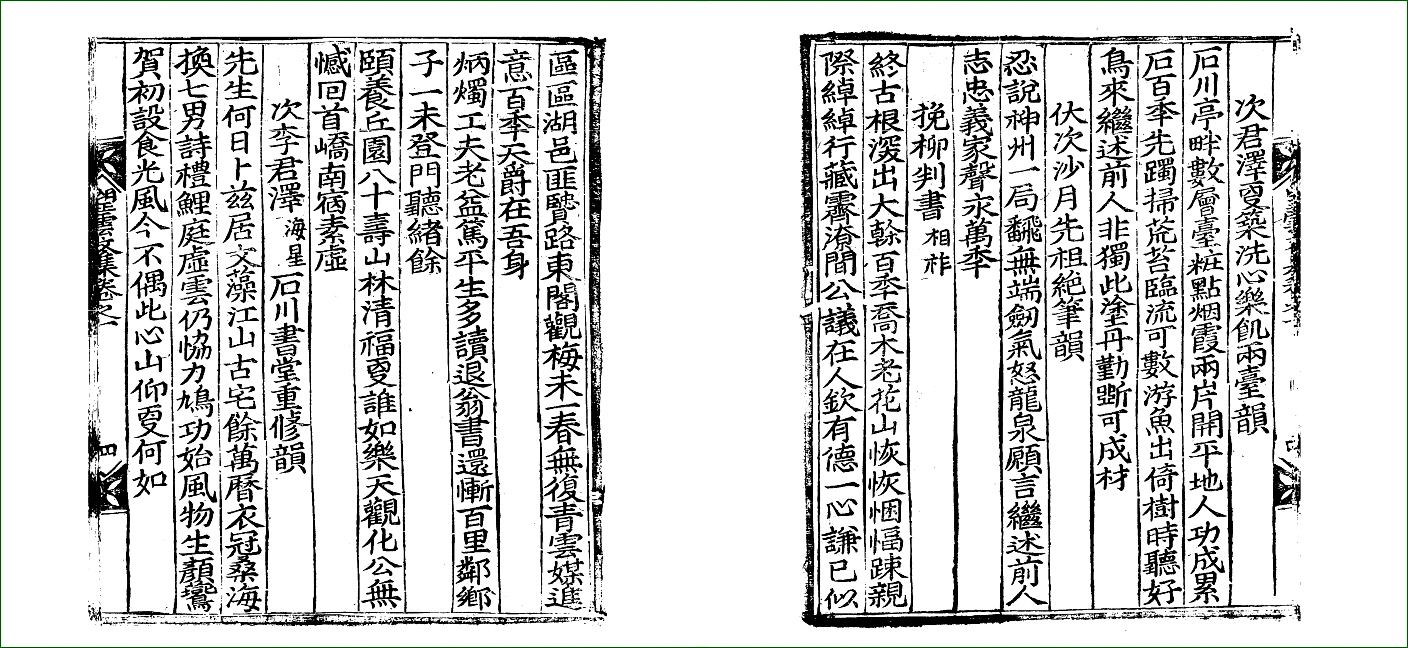 次君澤更築洗心樂飢兩臺韻
石川亭畔數層臺粧點烟霞兩岸開平地人功成累
石百秊先躅掃荒苔臨流可數游魚出倚樹時聽好
鳥來繼述前人非獨此塗丹勤斲可成材
伏次沙月先祖絶筆韻
忍說神州一局飜無端劒氣怒龍泉願言繼述前人
志忠義家聲永萬秊
挽柳判書 相祚
終古根深出大榦百秊喬木老花山恢恢悃愊踈親
際綽綽行藏霽潦間公議在人欽有德一心謙已似
區區湖邑匪驥路東閣觀梅未一春無復青雲媒進
意百秊天爵在吾身
炳燭工夫老益篤平生多讀退翁書還慚百里鄰鄕
子一未登門聽緖餘
頤養丘園八十壽山林清福更誰如樂天觀化公無
憾回首嶠南宿素虛
次李君澤 海星 石川書堂重修韻
先生何日卜玆居文藻江山古宅餘萬曆衣冠桑海
換七男詩禮鯉庭虛雲仍恊力鳩功始風物生顏饗
賀初設食光風今不偶此心山仰更何如
雲文集卷之一
四